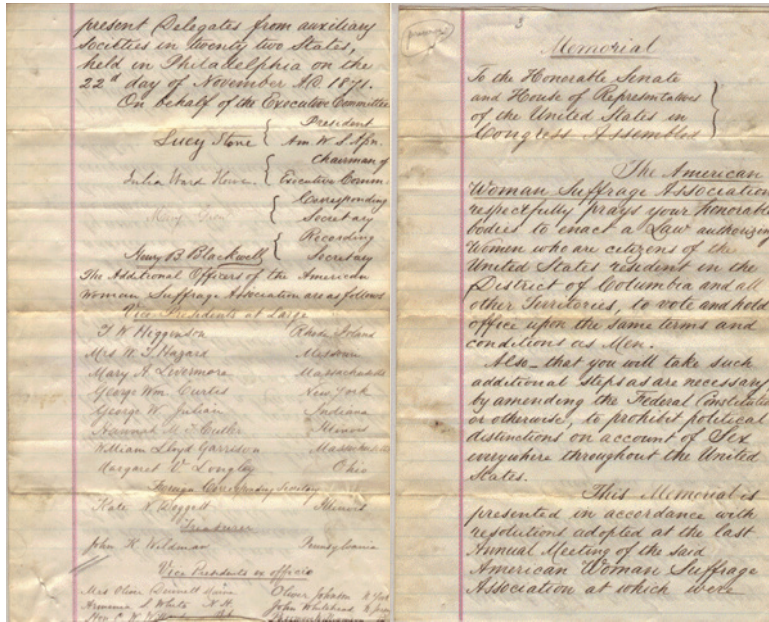 present Delegates from auxiliary
Societies in twenty two States,
held in Philadelphia on the
22d day of November A.D. 1871.
On behalf of the Executive Committee
Lucy Stone { President Am. W. S. Assn.
Julia Ward Howe. { Chairman of Executive Comm.
Mary Grew { Corresponding Secretary
Henry B Blackwell { Recording Secretary
The Additional Officers of the American
Woman Suffrage Association are as follows
Vice Presidents at Large
T W Higginson Rhode Island
Mrs W. T. Hazard Missouri
Mary A Livermore Massachusetts
George Wm. Curtis New York
George W Julian Indiana
Hannah M T Cutler Illinois
William Lloyd Garrison Massachusetts
Margaret V Longley Ohio
Foreign Corresponding Secretary
Kate N Doggett Illinois
Treasurer
John K Wildman Pennsylvania
Vice Presidents ex officio
Mrs Oliver Dennett Maine Oliver Johnson N York
Armenia S White N.H. John Whitehead N Jersey
3
Memorial
To the Honorable Senate
and House of Representatives
of the United States in
Congress Assembled }
The American
Woman Suffrage Association
respectfully prays your honorable
bodies to enact a Law authorizing
Women who are citizens of the
United States resident in the
District of Columbia and all
other Territories, to vote and hold
office upon the same terms and
conditions as Men.
Also - that you will take such
additional steps as are necessary
by amending the Federal Constitution
or otherwise, to prohibit political
distinctions on account of Sex
everywhere throughout the United
States.
This Memorial is
presented in accordance with
resolutions adopted at the last
Annual Meeting of the said
American Woman Suffrage
Association at which were